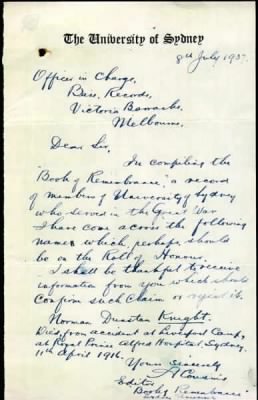 The University of Sydney
8th July 193
Officer in Charge,
Base Records,
Victoria Barracks,
Melbourne.
Dear Sir,
In compiling the
"Book of Remembrance," a record
of members of University of Sydney
who served in the Great War
I have come across the following
name which, perhaps, should
be on the Roll of Honour.
I shall be thankful to receive
information from you which should
confirm such claim or reject it.
Norman Dunstan Knight.
Died from accident at Liverpool Camp,
at Royal Prince Alfred Hospital, Sydney.
11th April 1916.
Yours sincerely
Editor
Book of Remembrance